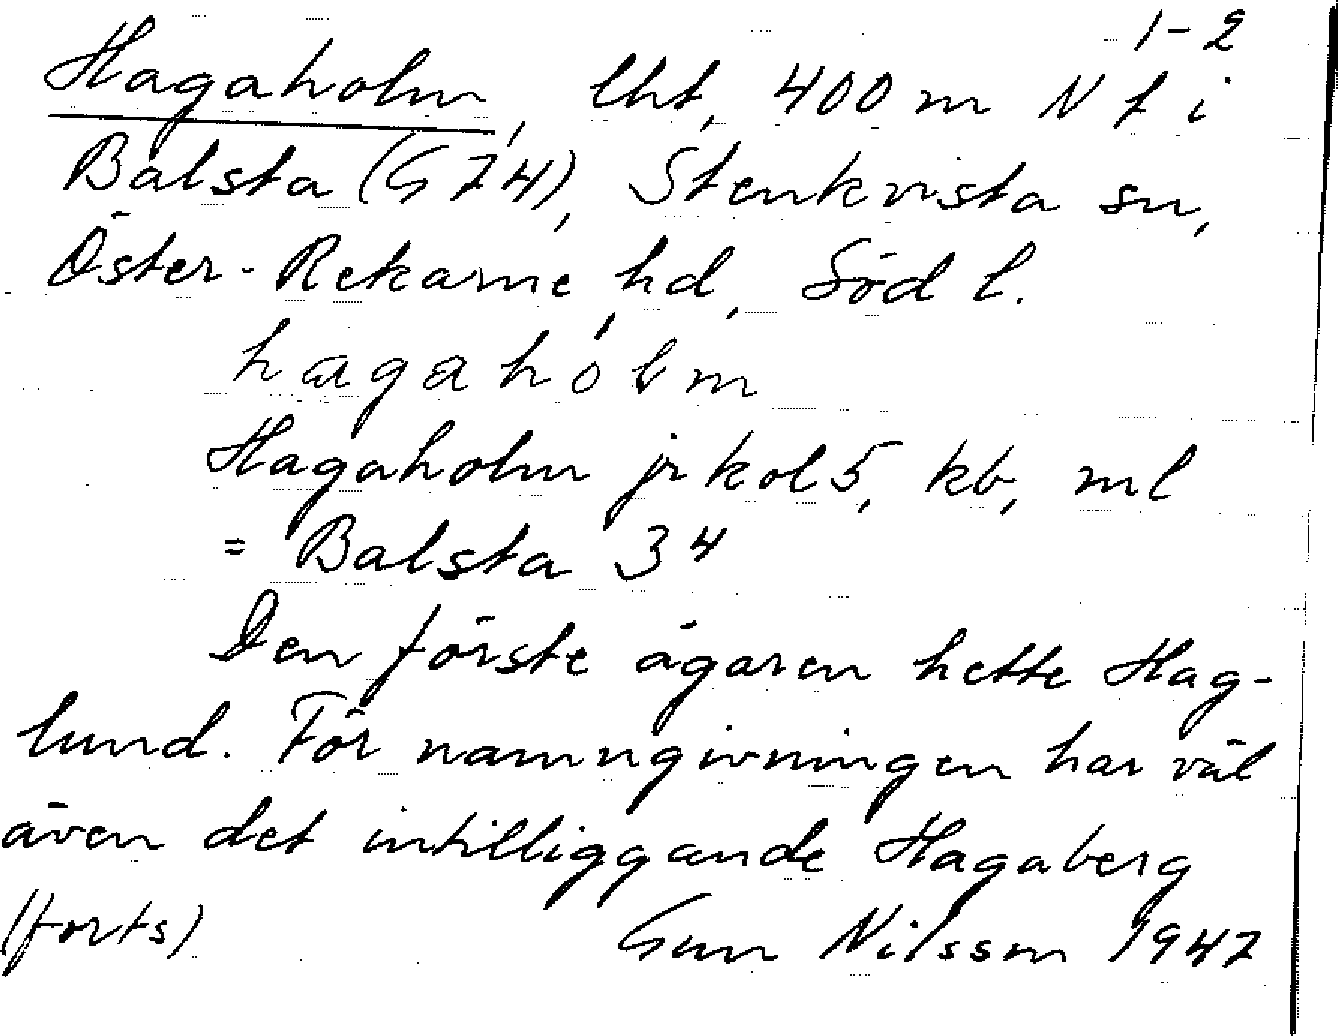 1-2
Hagaholm, lht, 400 m N t i
Balsta (G 74), Stenkvista sn,
Öster-Rekarne hd, Söd l.
hagahólm
Hagaholm jr kol 5, kb, ml
= Balsta 34
Den förste ägaren hette Hag-
lund. För namngivningen har väl
även det intilliggande Hagaberg
(forts) Gun Nilsson 1947